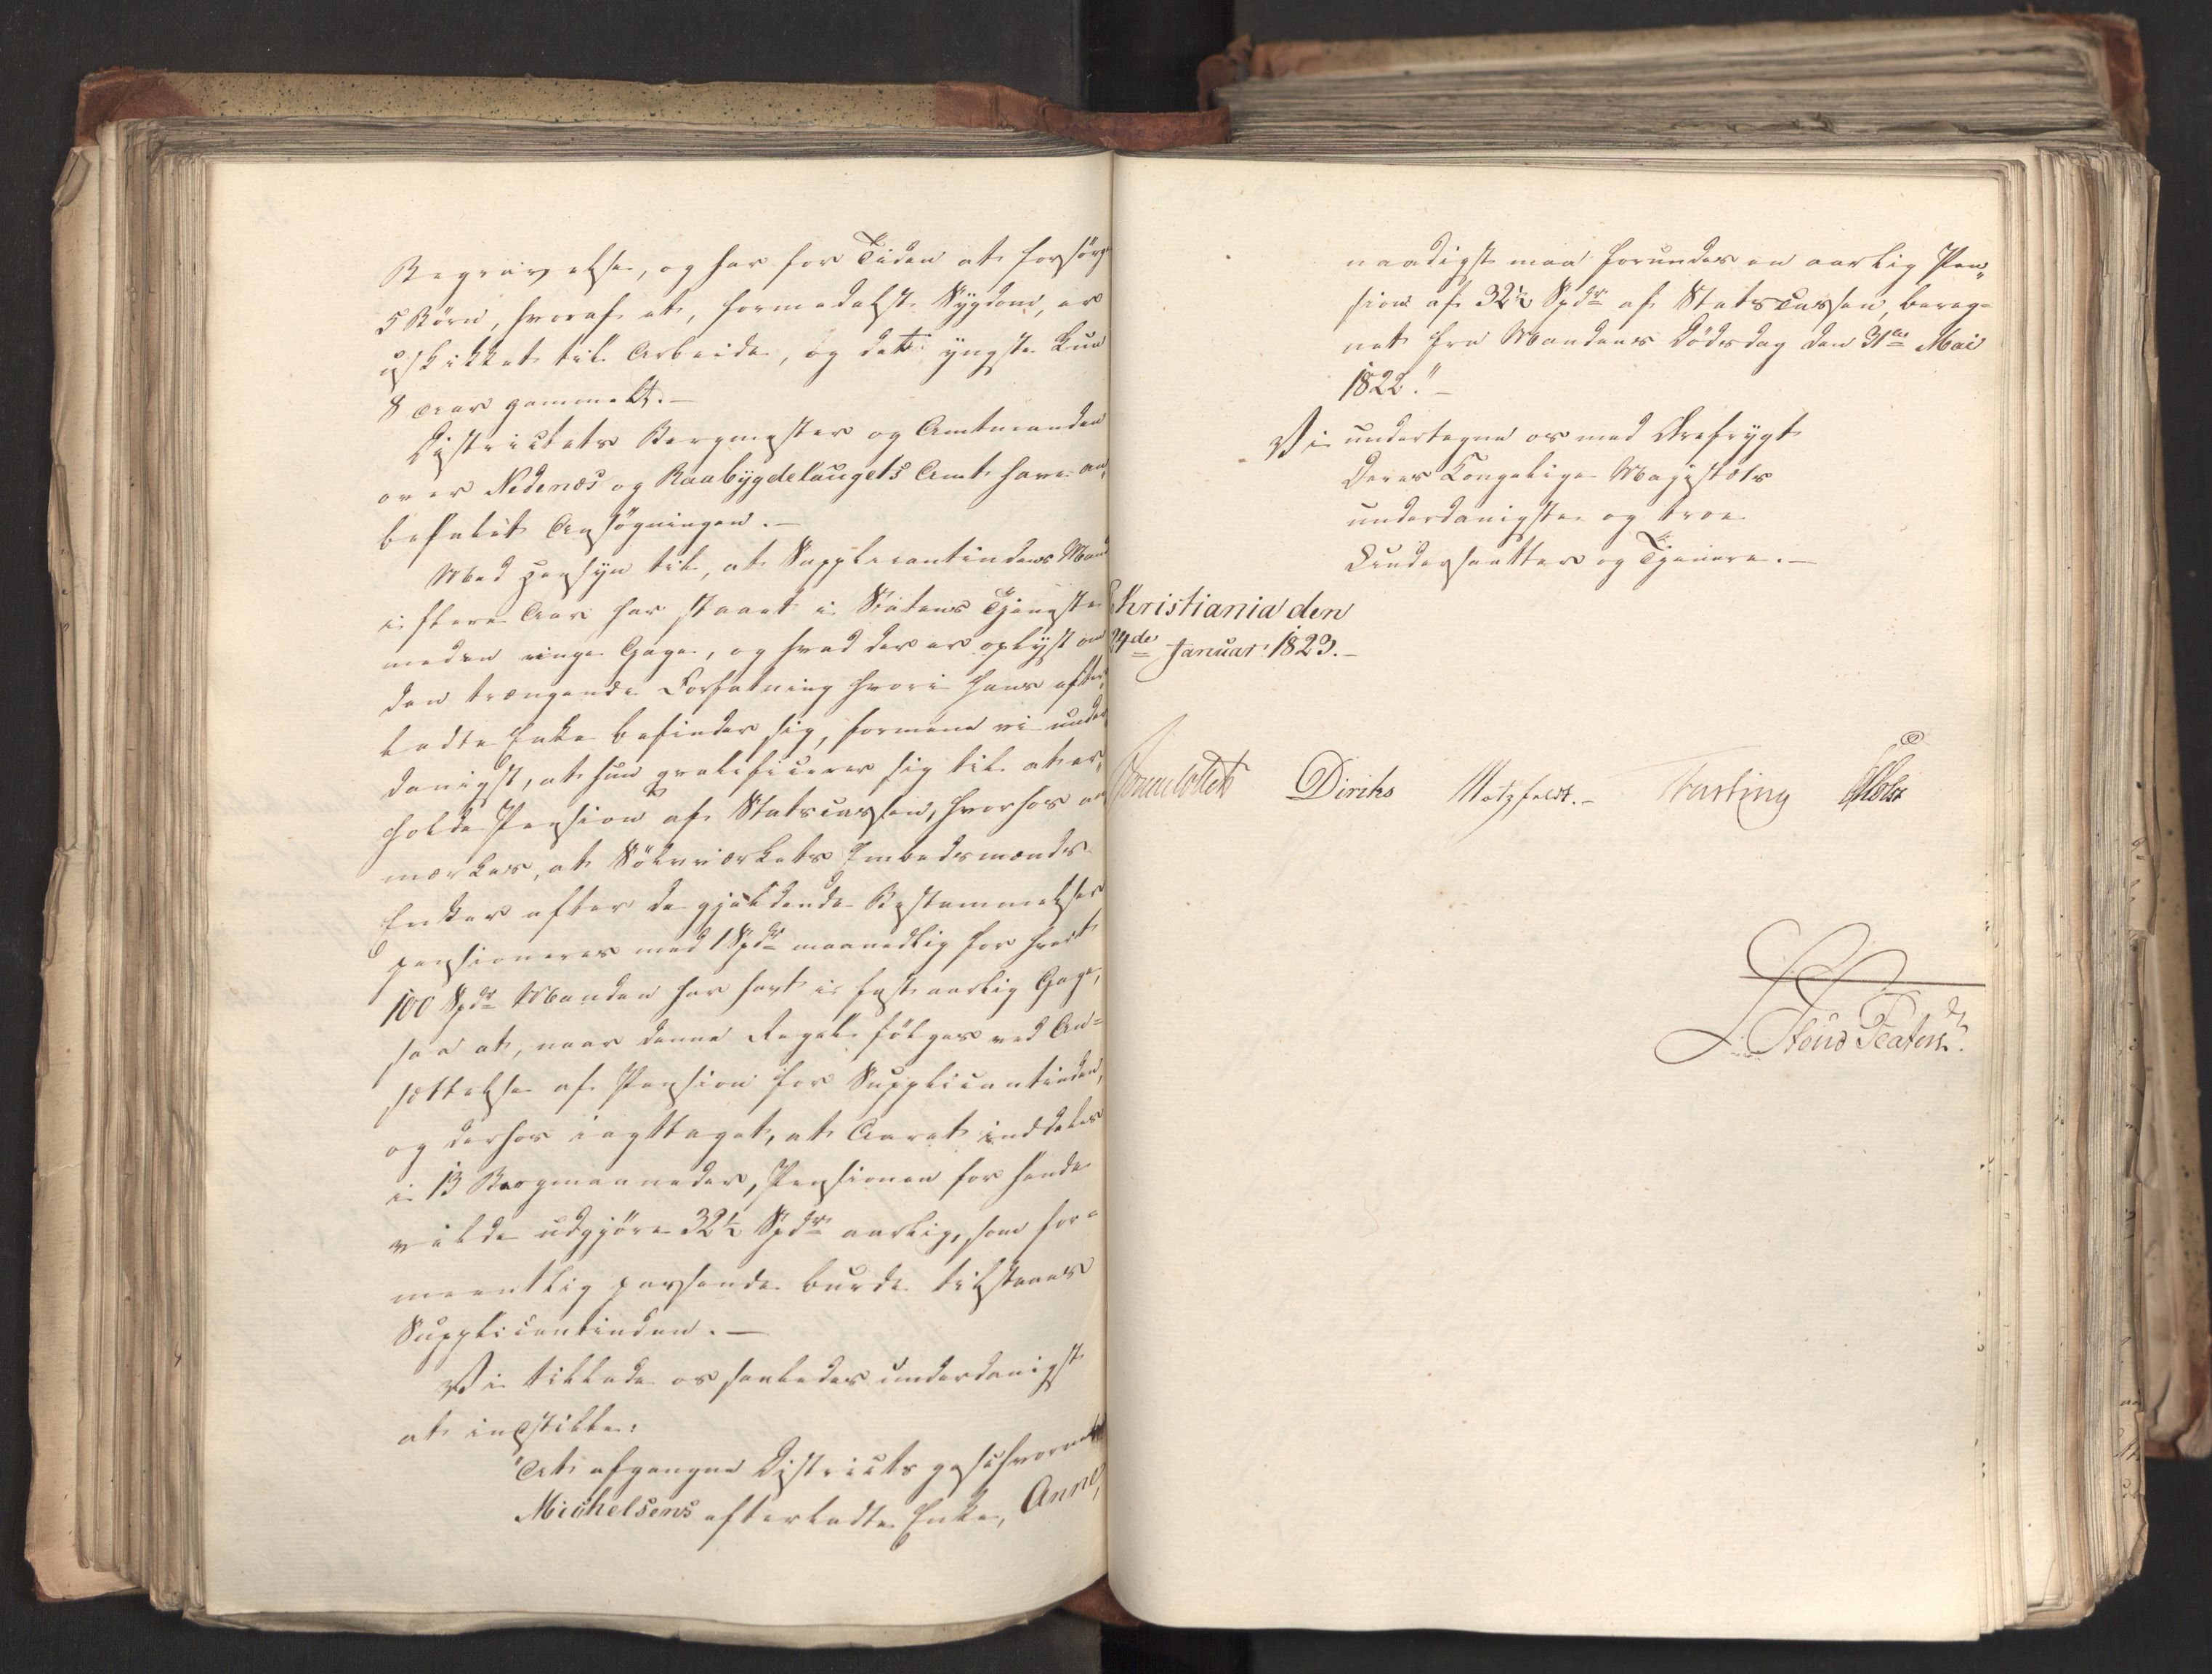 Begravelse, og har for Tiden at forsørge
5 Børn, hvoraf et, formedelst Sygdom, er
uskikket til Arbeide, og det yngste kun
8 Aar gammelt.—
Districtets Bergmester og Amtmanden
over Nedenæs og Raabygdelaugets Amt have an„
befalet Ansøgningen.—
Med Hensyn til, at Supplicantindens Mand
i flere Aar har staaet i Statens Tjeneste
med en ringe Gage, og hvad der er oplyst om
den trængende Forfatning hvori hans efter„
ladte Enke befinder sig, formene vi under„
danigst, at hun qvalificerer sig til at er„
holde Pension af Statscassen, hvorhos an„
mærkes, at Sølvværkets Embedsmænds
Enker efter de gjældende Bestemmelser
pensioneres med 1 Spdr maanedlig for hvert
100 Spdr Manden har havt i fast aarlig Gage,
saa at, naar denne Regel følges ved An=
sættelse af Pension for Supplicantinden,
og derhos iagttaget, at Aaret inddeles
i 13 Bergmaaneder, Pensionen for hende
vilde udgjøre 32½ Spdr aarlig, som for=
meentlig passende burde tilstaaes
Supplicantinden.—
Vi tillade os saaledes underdanigst
at indstille:
"At afgangne Districts geschworner
Michelsens efterladte Enke, Anne,
naadigst maa forundes en aarlig Pen„
sion af 32½ Spdr af Statscassen, bereg=
net fra Mandens Dødsdag den 31te Mai
1822."—
Vi undertegne os med Ærefrygt
Deres Kongelige Majestæts
underdanigste og troe
Undersaatter og Tjenere.—
Christiania den
24de Januar 1823.—
Jonas Collett Diriks Motzfeldt.— Fasting Holst